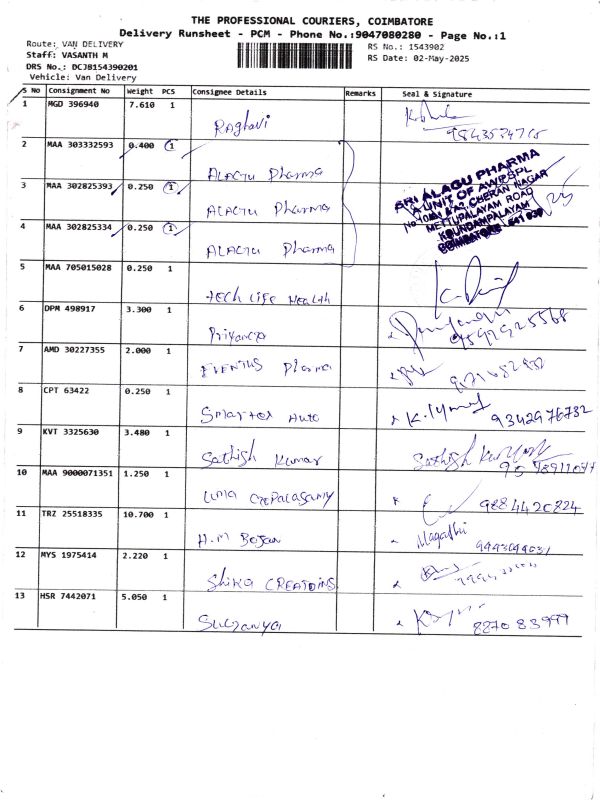 THE PROFESSIONAL COURIERS, COIMBATORE
Delivery Runsheet - PCM - Phone No.:9047080280 - Page No.:1
Route: VAN DELIVERY
RS No.: 1543902
Staff: VASANTH M
RS Date: 02-May-2025
DRS No.: DCJB154390201
Vehicle: Van Delivery
S No Consignment No Weight PCS Consignee Details Remarks Seal & Signature
1 MGD 396940 7.610 1 Raghavi
2 MAA 303332593 0.400 1 ALAGU Pharma
3 MAA 302825393 0.250 1 ALAGU Pharma
4 MAA 302825334 0.250 1 ALAGU Pharma
SRI ALAGU PHARMA
A UNIT OF
CHERAN NAGAR
METTUPALAYAM ROAD
KOUNDAMPALAYAM
5 MAA 705015028 0.250 1 Tech Life Health
6 DPM 498917 3.300 1 Priyanga
7 AMD 30227355 2.000 1 Pharma
8 CPT 63422 0.250 1 Smartex Auto 9342976732
9 KVT 3325630 3.480 1 Sathish Kumar Sathish
10 MAA 9000071351 1.250 1 Uma 9884420824
11 TRZ 25518335 10.700 1 H.M
12 MYS 1975414 2.220 1 Shika CREATIONS
13 HSR 7442071 5.050 1 887083999